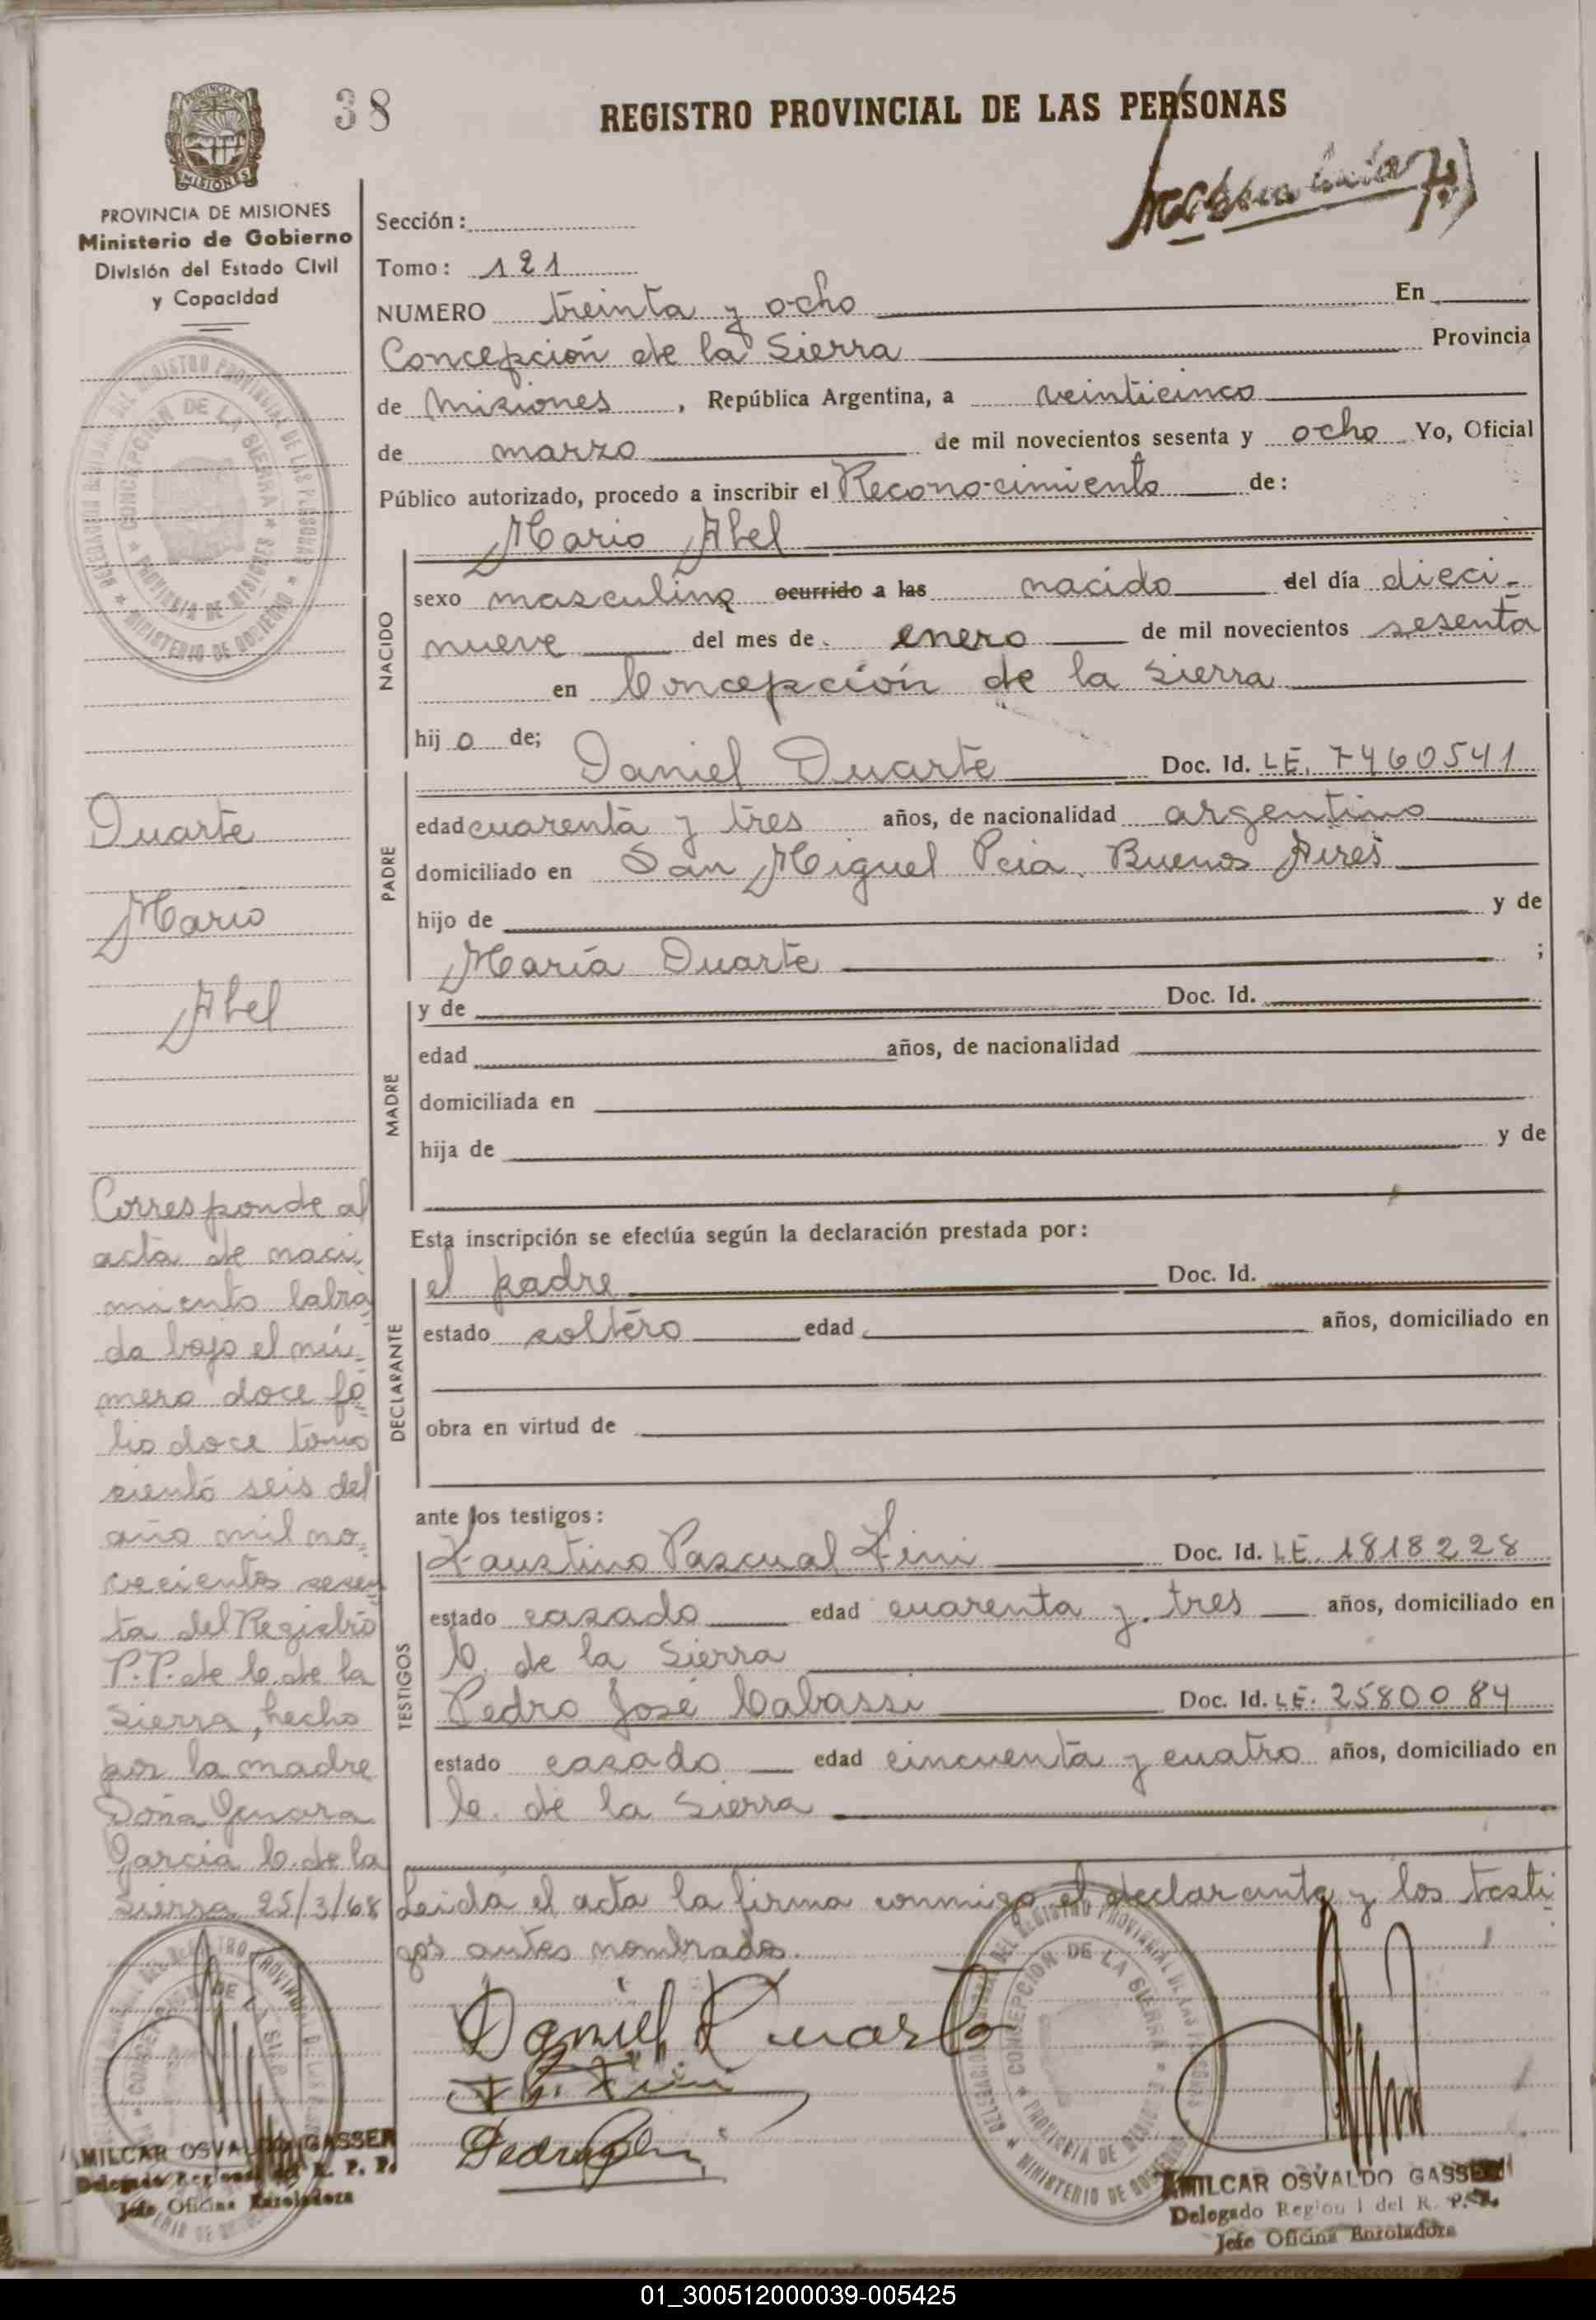 38
REGISTRO PROVINCIAL DE LAS PERSONAS
PROVINCIA DE MISIONES
Ministerio de Gobierno
División del Estado Civil
y Capacidad
Sección:
Tomo: 121
NUMERO treinta y ocho En
Concepción de la Sierra Provincia
de Misiones, República Argentina, a veinticinco
de marzo de mil novecientos sesenta y ocho Yo, Oficial
Público autorizado, procedo a inscribir el Reconocimiento de:
Mario Abel
NACIDO
sexo masculino ocurrido a las nacido del día dieci-
nueve del mes de enero de mil novecientos sesenta
en Concepción de la Sierra
hijo de;
PADRE
Daniel Duarte Doc. Id. LE. 7460541
edad cuarenta y tres años, de nacionalidad argentino
domiciliado en San Miguel Pcia. Buenos Aires
hijo de y de
María Duarte ;
MADRE
y de Doc. Id.
edad años, de nacionalidad
domiciliada en
hija de y de
Esta inscripción se efectúa según la declaración prestada por:
DECLARANTE
el padre Doc. Id.
estado soltero edad años, domiciliado en
obra en virtud de
ante los testigos:
TESTIGOS
Faustino Pascual Fini Doc. Id. LE. 1818228
estado casado edad cuarenta y tres años, domiciliado en
C. de la Sierra
Pedro José Cabassi Doc. Id. LE. 2580084
estado casado edad cincuenta y cuatro años, domiciliado en
C. de la Sierra
Leida el acta la firma conmigo el declarante y los testi-
gos antes nombrados.
Daniel Duarte
Duarte
Mario
Abel
Corresponde al
acta de naci-
miento labra-
da bajo el nú-
mero doce fo-
lio doce tomo
ciento seis del
año mil no-
vecientos sesen-
ta del Registro
P.P. de C. de la
Sierra, hecho
por la madre
Doña Genara
Garcia C. de la
Sierra 25/3/68
DELEGACION REGIONAL DEL REGISTRO PROVINCIAL DE LAS PERSONAS
CONCEPCION DE LA SIERRA
PROVINCIA DE MISIONES
MINISTERIO DE GOBIERNO
AMILCAR OSVALDO GASSER
Delegado Regional del R. P. P.
Jefe Oficina Enroladora
AMILCAR OSVALDO GASSER
Delegado Regional del R. P. P.
Jefe Oficina Enroladora
01_300512000039-005425